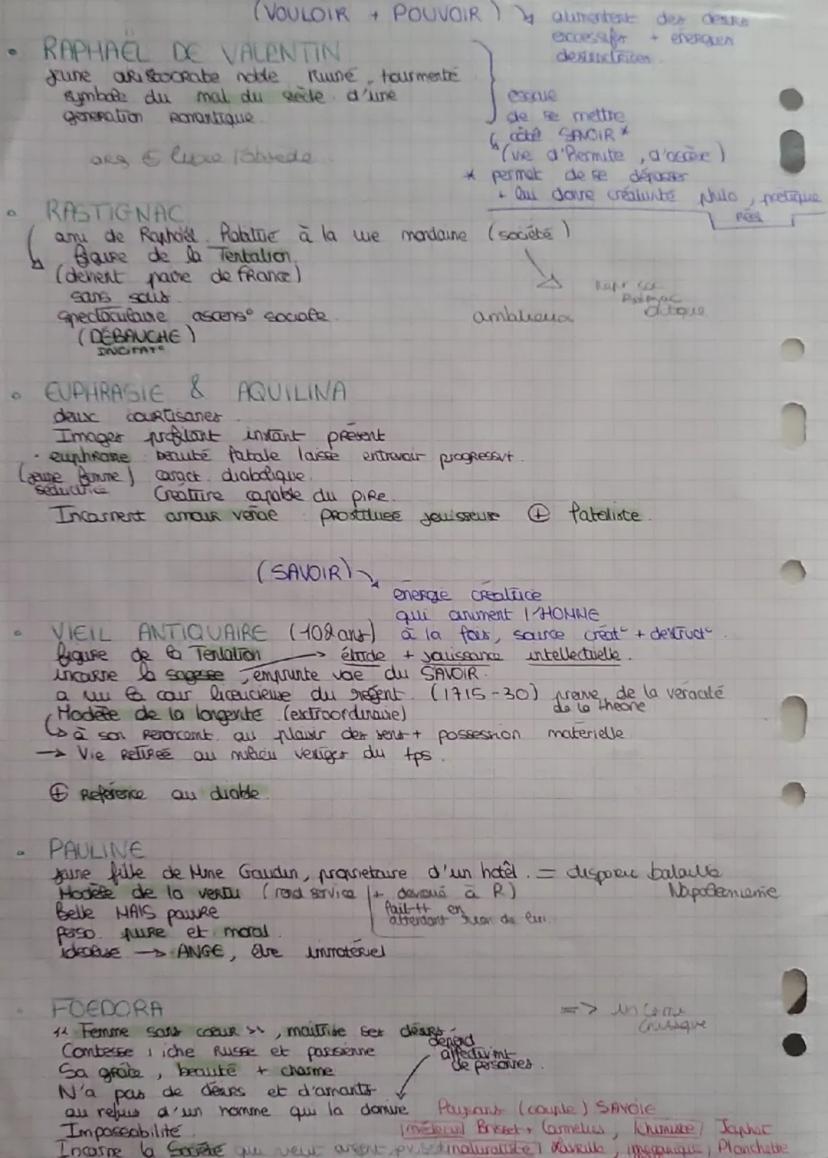 (VOULOIR + POUVOIR) ↘ alimentent des désirs
excessifs + énergies
destructrices
• RAPHAËL DE VALENTIN
jeune aristocrate noble ruiné, tourmenté
symbole du mal du siècle d'une
génération romantique.
essaie
de se mettre
côté SAVOIR *
(vie d'ermite, d'ascèse)
* permet de se dépasser
+ lui donne créativité philo, poétique
réel
• RASTIGNAC
ami de Raphaël. l'initie à la vie mondaine (société)
figure de la Tentation.
(devient paire de France)
sans sous
spectaculaire ascens° sociale.
ambitieux
(DÉBAUCHE)
INCITAT°
• EUPHRASIE & AQUILINA
deux courtisanes
Images profitant instant présent
• euphrasie beauté fatale laisse entrevoir progressivt.
(jeune femme) caract. diabolique.
séductrice Créature capable du pire.
Incarnent amour vénal prostituée jouisseuse ⊕ fataliste.
(SAVOIR) ↘
énergie créatrice
qui animent l'HOMME
• VIEIL ANTIQUAIRE (102 ans) à la fois, source créat° + destruct°.
figure de la Tentation → étude + jouissance intellectuelle.
incarne la sagesse, emprunte voie du SAVOIR.
a vu la cour licencieuse du régent. (1715-30) preuve de la véracité
de la théorie
Modèle de la longévité (extraordinaire)
↳ à son renoncemt au plaisir des sens + possession matérielle
→ Vie retirée au milieu vestiges du tps.
⊕ Référence au diable.
• PAULINE
jeune fille de Mme Gaudin, propriétaire d'un hotêl. = disparu bataille
Napoléonienne
Modèle de la vertu (rend service + dévoué à R)
Belle MAIS pauvre
fait ++ en
attendant rien de lui.
perso. pure et moral.
idéalisé → ANGE, être immatériel
• FOEDORA
"Femme sans coeur", maîtrise ses désirs.
dépend
affectivimt
de personnes.
Comtesse riche russe et parisienne
Sa grâce, beauté + charme
N'a pas de désirs et d'amants
au refus d'un homme qui la domine Paysans (couple) SAVOIE
Impossibilité (médecin) Brisset + Camelius, (chimiste) Japhet
Incarne la Société qui veut argent, (naturaliste) Lavrille, (mécanique) Planchette